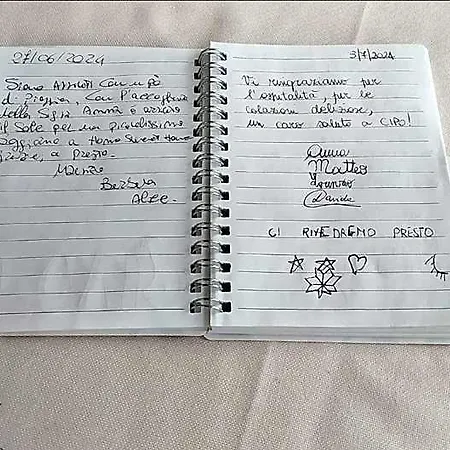 27/06/2024
Siamo Arrivati Con un pò
di Pioggia, Con l'accoglienza
della Sig.ra Anna è arrivato
il Sole per noi
a Home Sweet Home
Grazie, a Presto.
Barbara
3/7/2024
Vi ringraziamo per
l'ospitalità, per le
colazioni deliziose,
un caro saluto a CIPO!
Anna
Matteo
Lorenzo
Davide
CI RIVEDREMO PRESTO